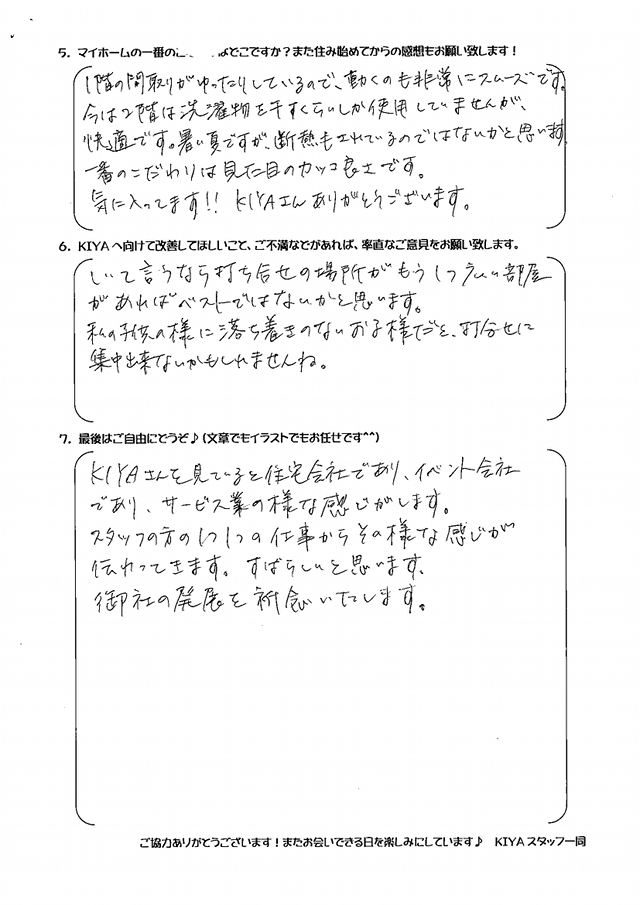 5. マイホームの一番のこ　　　はどこですか？また住み始めてからの感想もお願い致します！
1階の間取りがゆったりしているので、動くのも非常にスムーズです。
今は2階は洗濯物を干すくらいしか使用していませんが、
快適です。暑い夏ですが、断熱もされているのではないかと思います
一番のこだわりは見た目のカッコ良さです。
気に入ってます!! KIYAさんありがとうございます。
6. KIYAへ向けて改善してほしいこと、ご不満などがあれば、率直なご意見をお願い致します。
しいて言うなら打ち合せの場所がもう1つ広い部屋
があればベストではないかと思います。
私の子供の様に落ち着きのないお子様だと、打合せに
集中出来ないかもしれませんね。
7. 最後はご自由にどうぞ♪(文章でもイラストでもお任せです^^)
KIYAさんを見ていると住宅会社であり、イベント会社
であり、サービス業の様な感じがします。
スタッフの方の1つ1つの仕事からその様な感じが
伝わってきます。すばらしいと思います。
御社の発展を祈念いたします。
ご協力ありがとうございます！またお会いできる日を楽しみにしています♪　KIYAスタッフ一同